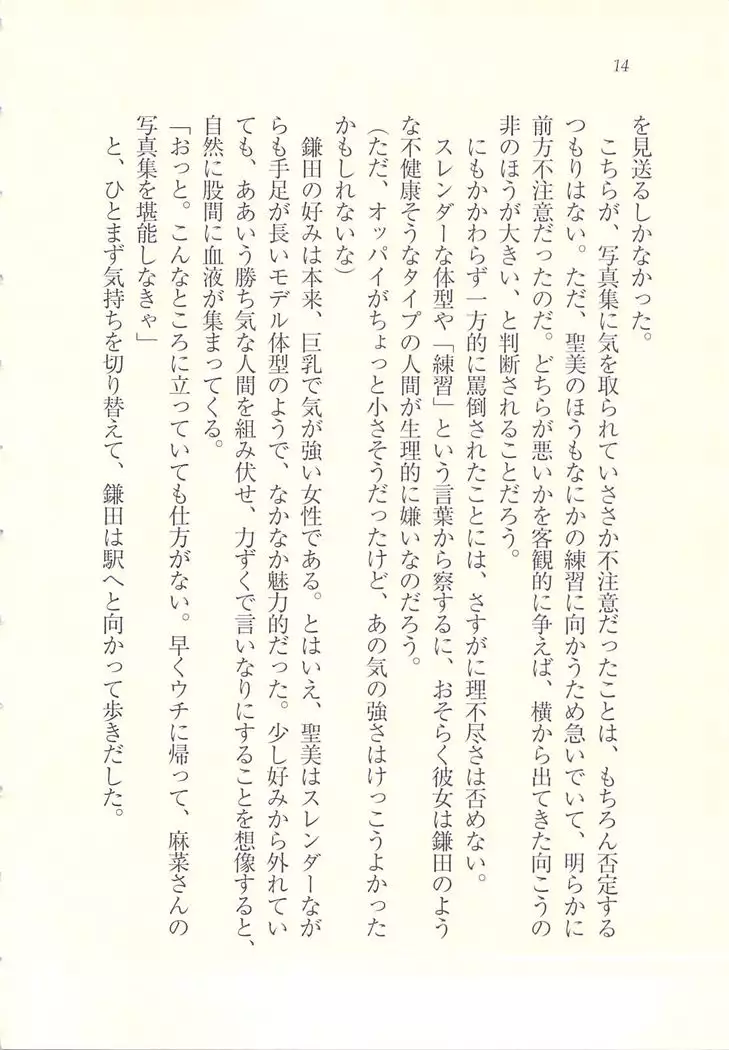 14
を見送るしかなかった。
こちらが、写真集に気を取られていささか不注意だったことは、もちろん否定する
つもりはない。ただ、聖美のほうもなにかの練習に向かうため急いでいて、明らかに
前方不注意だったのだ。どちらが悪いかを客観的に争えば、横から出てきた向こうの
非のほうが大きい、と判断されることだろう。
にもかかわらず一方的に罵倒されたことには、さすがに理不尽さは否めない。
スレンダーな体型や「練習」という言葉から察するに、おそらく彼女は鎌田のよう
な不健康そうなタイプの人間が生理的に嫌いなのだろう。
（ただ、オッパイがちょっと小さそうだったけど、あの気の強さはけっこうよかった
かもしれないな）
鎌田の好みは本来、巨乳で気が強い女性である。とはいえ、聖美はスレンダーなが
らも手足が長いモデル体型のようで、なかなか魅力的だった。少し好みから外れてい
ても、ああいう勝ち気な人間を組み伏せ、力ずくで言いなりにすることを想像すると、
自然に股間に血液が集まってくる。
「おっと。こんなところに立っていても仕方がない。早くウチに帰って、麻菜さんの
写真集を堪能しなきゃ」
と、ひとまず気持ちを切り替えて、鎌田は駅へと向かって歩きだした。